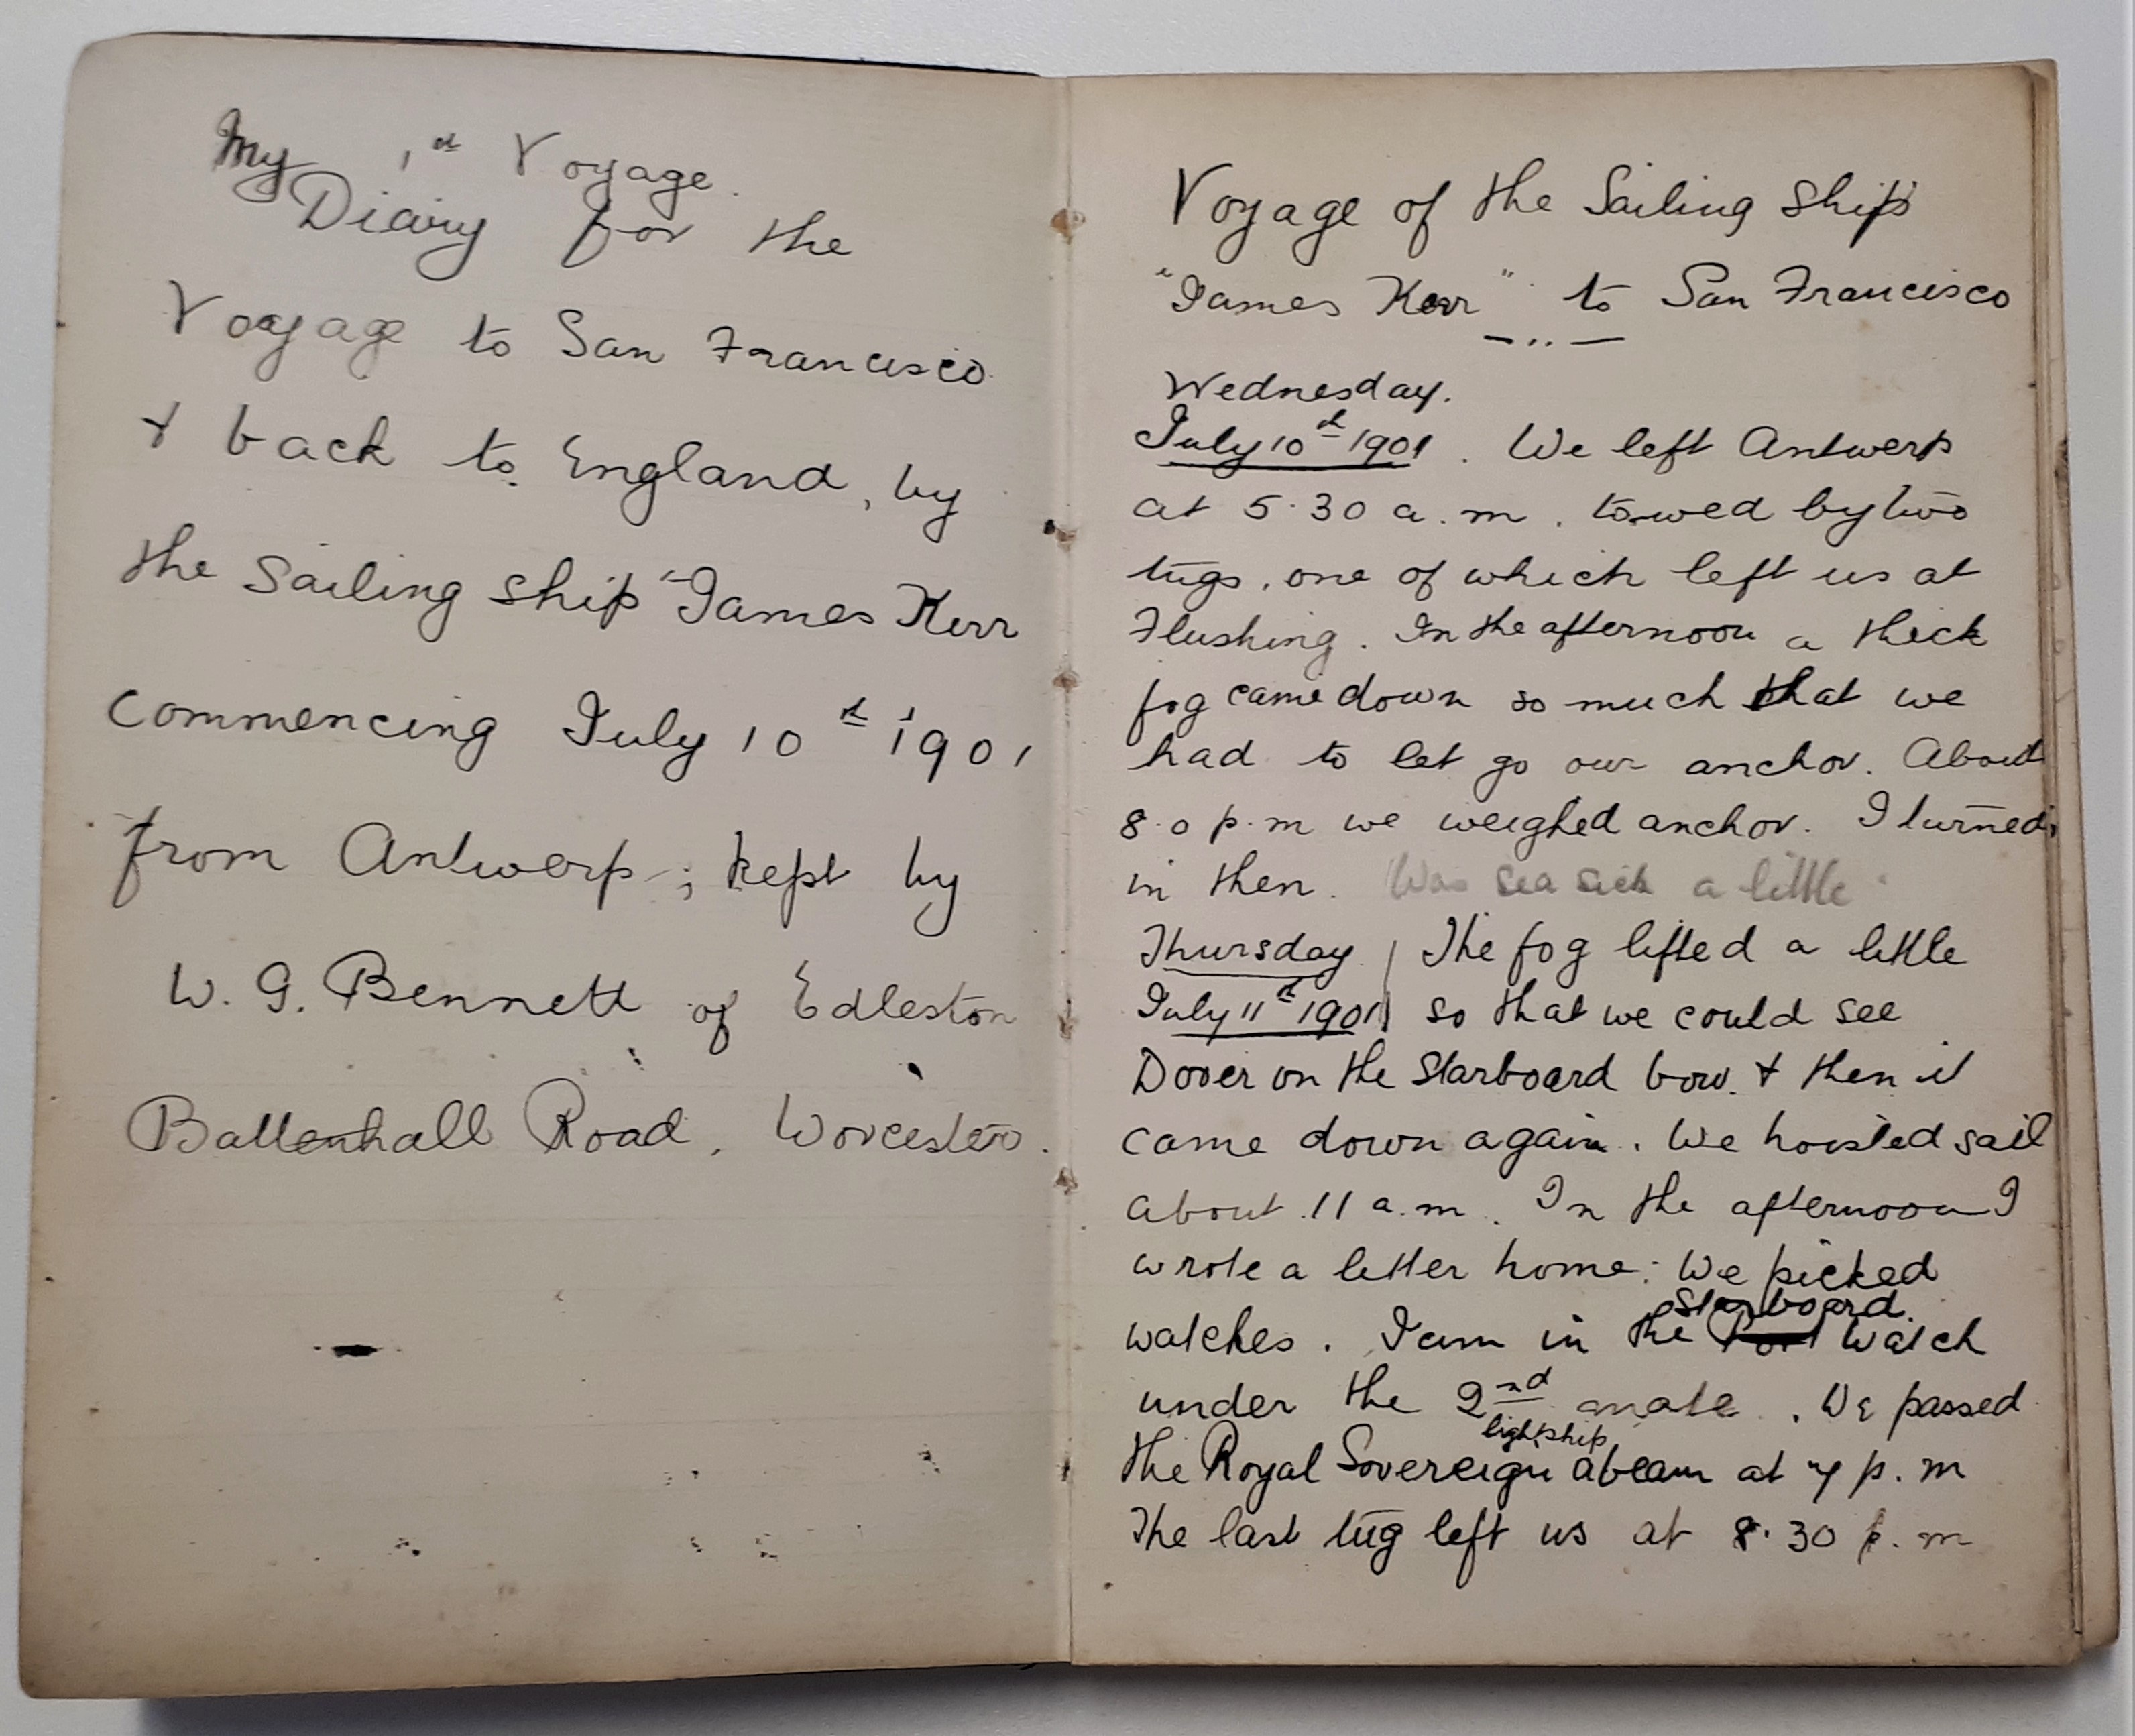 My 1st Voyage.
Diary for the
Voyage to San Francisco
& back to England, by
the Sailing ship "James Kerr
commencing July 10th 1901
from Antwerp; kept by
W. G. Bennett of Edleston
Battenhall Road, Worcester.
Voyage of the Sailing Ship
"James Kerr" to San Francisco
Wednesday.
July 10th 1901. We left Antwerp
at 5.30 a.m. towed by two
tugs, one of which left us at
Flushing. In the afternoon a thick
fog came down so much that we
had to let go our anchor. About
8.0 p.m we weighed anchor. I turned
in then. Was sea sick a little
Thursday The fog lifted a little
July 11th 1901 so that we could see
Dover on the Starboard bow. & then it
came down again. We hoisted sail
about 11 a.m. In the afternoon I
wrote a letter home. We picked
Starboard.
watches. I am in the Port Watch
under the 2nd mate. We passed
lightship
the Royal Sovereign abeam at 7 p.m
The last tug left us at 8.30 p.m